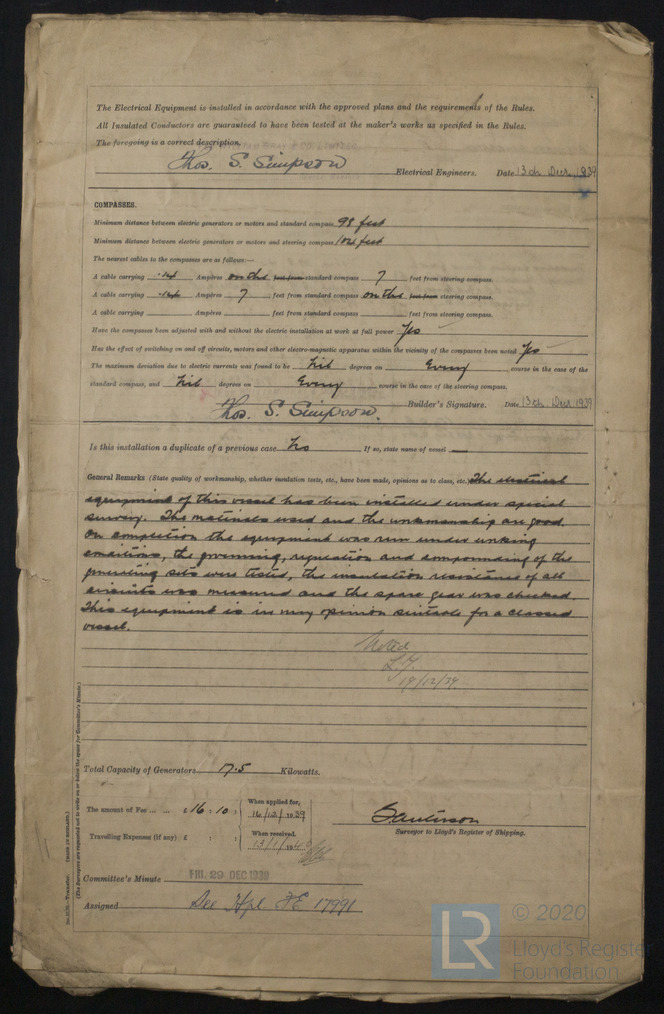 The Electrical Equipment is installed in accordance with the approved plans and the requirements of the Rules.
All Insulated Conductors are guaranteed to have been tested at the maker's works as specified in the Rules.
The foregoing is a correct description.
Thos. S. Simpson Electrical Engineers. Date 13th Decr. 1939
COMPASSES.
Minimum distance between electric generators or motors and standard compass 98 feet
Minimum distance between electric generators or motors and steering compass 104 feet
The nearest cables to the compasses are as follows:—
A cable carrying Ampères on the feet from standard compass 7 feet from steering compass.
A cable carrying Ampères 7 feet from standard compass on the feet from steering compass.
A cable carrying Ampères feet from standard compass feet from steering compass.
Have the compasses been adjusted with and without the electric installation at work at full power Yes
Has the effect of switching on and off circuits, motors and other electro-magnetic apparatus within the vicinity of the compasses been noted Yes
The maximum deviation due to electric currents was found to be Nil degrees on Every course in the case of the
standard compass, and Nil degrees on Every course in the case of the steering compass.
Thos. S. Simpson. Builder's Signature. Date 13th Decr 1939
Is this installation a duplicate of a previous case No If so, state name of vessel —
General Remarks (State quality of workmanship, whether insulation tests, etc., have been made, opinions as to class, etc.) The electrical
equipment of this vessel has been installed under special
survey. The materials used and the workmanship are good.
On completion the equipment was run under working
conditions, the governing, regulation and compounding of the
generating sets were tested, the insulation resistance of all
circuits was measured and the spare gear was checked.
This equipment is in my opinion suitable for a classed
vessel.
Noted
19/12/39
Total Capacity of Generators 17.5 Kilowatts.
The amount of Fee ... ... £ 16 : 10 : When applied for, 16/12/1939
Travelling Expenses (if any) £ : : When received, 13/1/1940
Surveyor to Lloyd's Register of Shipping.
Committee's Minute FRI. 29 DEC 1939
Assigned See FE 17991
(The Surveyors are requested not to write on or below the space for Committee's Minute.)
© 2020
LR
Lloyd's Register
Foundation